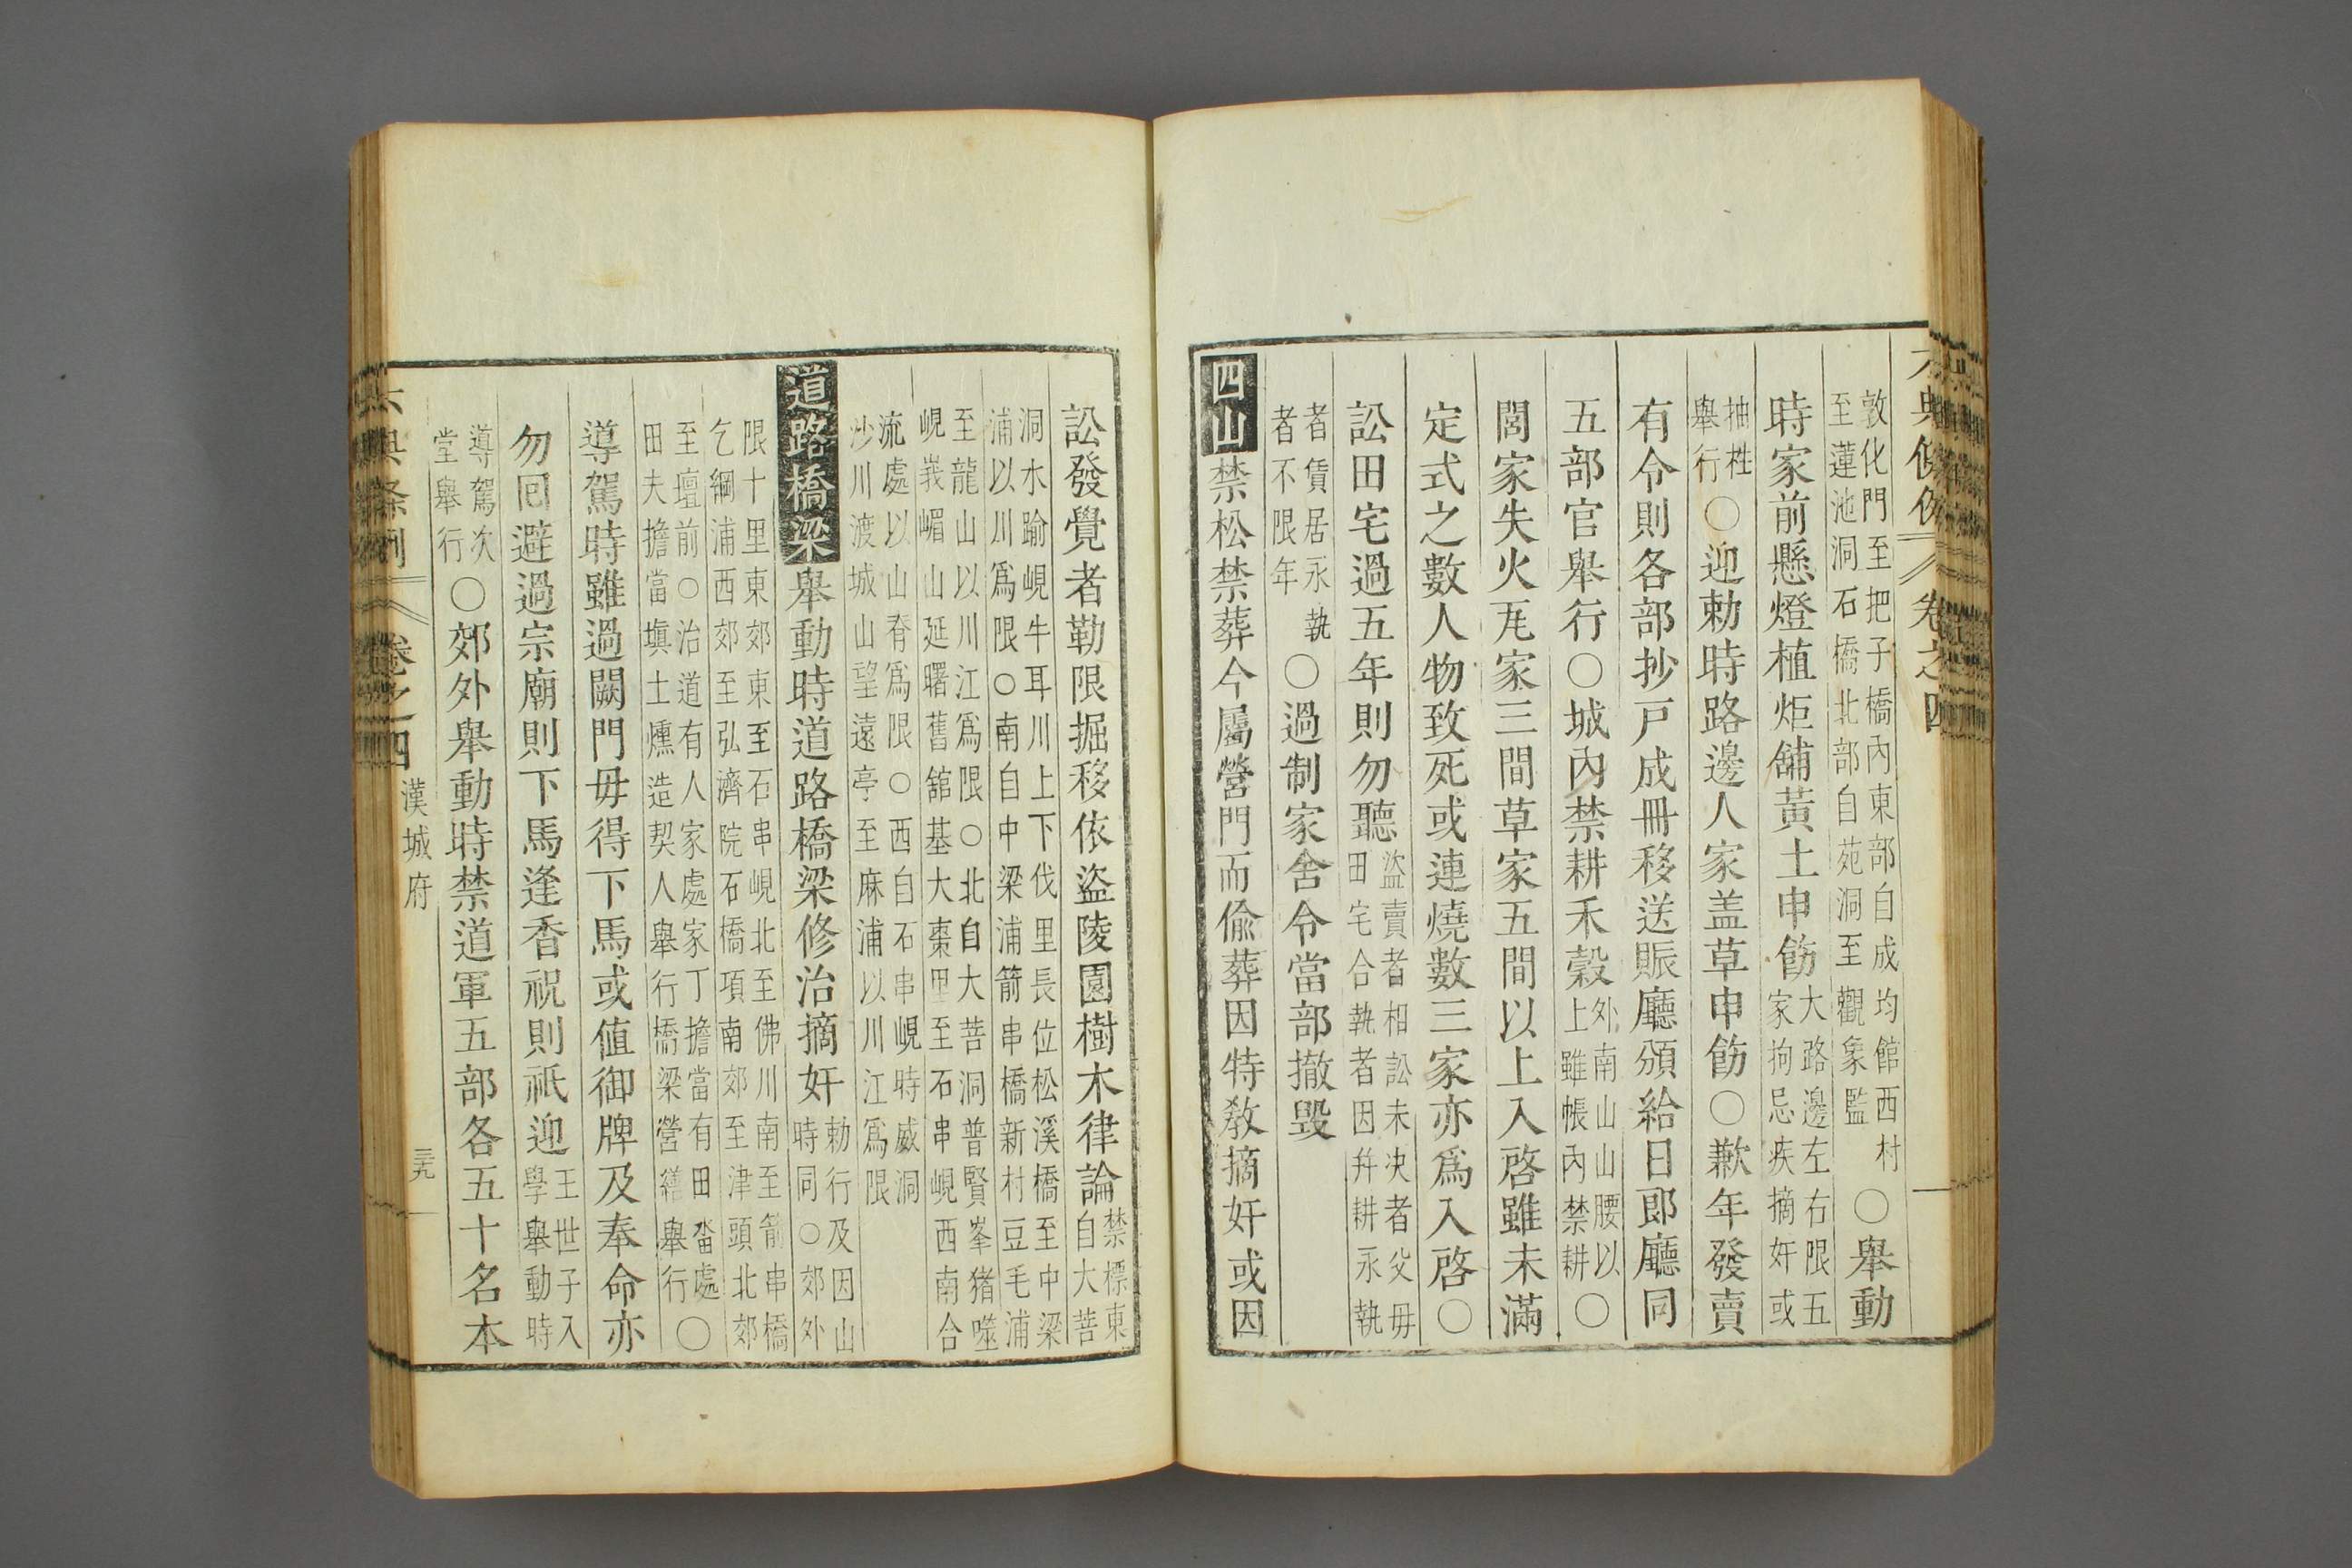 敦化門至把子橋內東部自成均館西村
至蓮池洞石橋北部自苑洞至觀象監
○舉動
時家前懸燈植炬舖黃土申飭
大路邊左右限五
家拘忌疾摘奸或
抽栍
舉行
○迎勅時路邊人家盖草申飭○歉年發賣
有令則各部抄戶成冊移送賑廳頒給日郎廳同
五部官舉行○城內禁耕禾穀
外南山山腰以
上雖帳內禁耕
○
閭家失火瓦家三間草家五間以上入啓雖未滿
定式之數人物致死或連燒數三家亦爲入啓○
訟田宅過五年則勿聽
盜賣者相訟未决者父母
田宅合執者因幷耕永執
者賃居永執
者不限年
○過制家舍令當部撤毀
四山禁松禁葬今屬營門而偸葬因特敎摘奸或因
訟發覺者勒限掘移依盜陵園樹木律論
禁標東
自大菩
洞水踰峴牛耳川上下伐里長位松溪橋至中梁
浦以川爲限○南自中梁浦箭串橋新村豆毛浦
至龍山以川江爲限○北自大菩洞普賢峯猪噬
峴峩嵋山延曙舊舘基大棗里至石串峴西南合
流處以山脊爲限○西自石串峴時威洞
沙川渡城山望遠亭至麻浦以川江爲限
道路橋梁舉動時道路橋梁修治摘奸
勅行及因山
時同○郊外
限十里東郊東至石串峴北至佛川南至箭串橋
乞綱浦西郊至弘濟院石橋項南郊至津頭北郊
至壇前○治道有人家處家丁擔當有田畓處
田夫擔當塡土燻造契人舉行橋梁營繕舉行○
導駕時雖過闕門毋得下馬或値御牌及奉命亦
勿回避過宗廟則下馬逢香祝則祇迎
王世子入
學舉動時
導駕次
堂舉行
○郊外舉動時禁道軍五部各五十名本
六典條例 卷之四 漢城府 三九